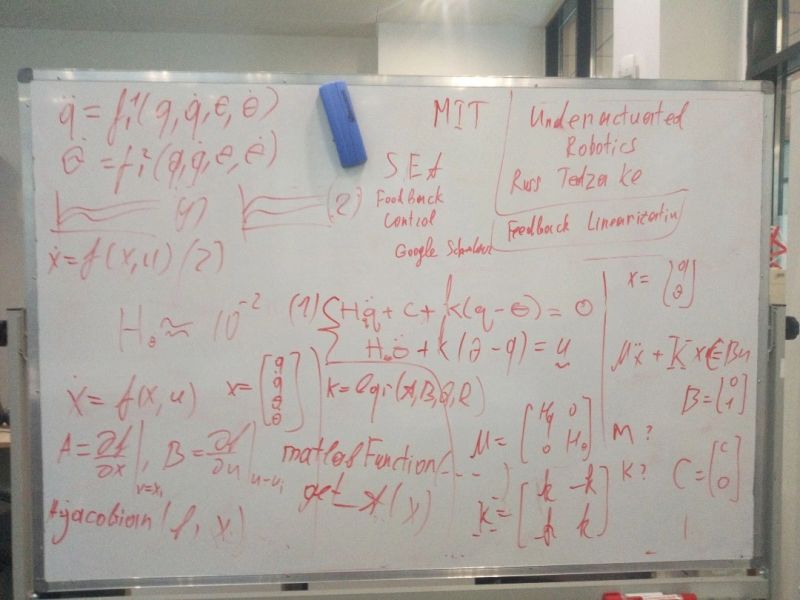 q̈ = f₁¹(q, q̇, θ, θ̇)
θ̈ = f₁²(q, q̇, θ, θ̇)
(1)
(2)
ẋ = f(x, u) (2)
MIT
Underactuated
Robotics
Russ Tedza ke
SEA
Feedback
Control
Google
Feedback Linearization
H₀ ≈ 10⁻²
(1) { Hq̈ + C + k(q - θ) = 0
H₀θ̈ + k(θ - q) = u
x = [q θ]
Mẍ + K x + C = Bu
B = [0 1]
ẋ = f(x, u)
x = [q q̇ θ θ̇]
K = lqr(A, B, Q, R)
A = ∂f/∂x |x=xᵢ, B = ∂f/∂u |u=uᵢ
matlabFunction(---)
get_A(x)
A=jacobian(f, x)
M = [Hq 0 0 H₀]
M?
K = [k -k -k k]
K?
C = [C 0]